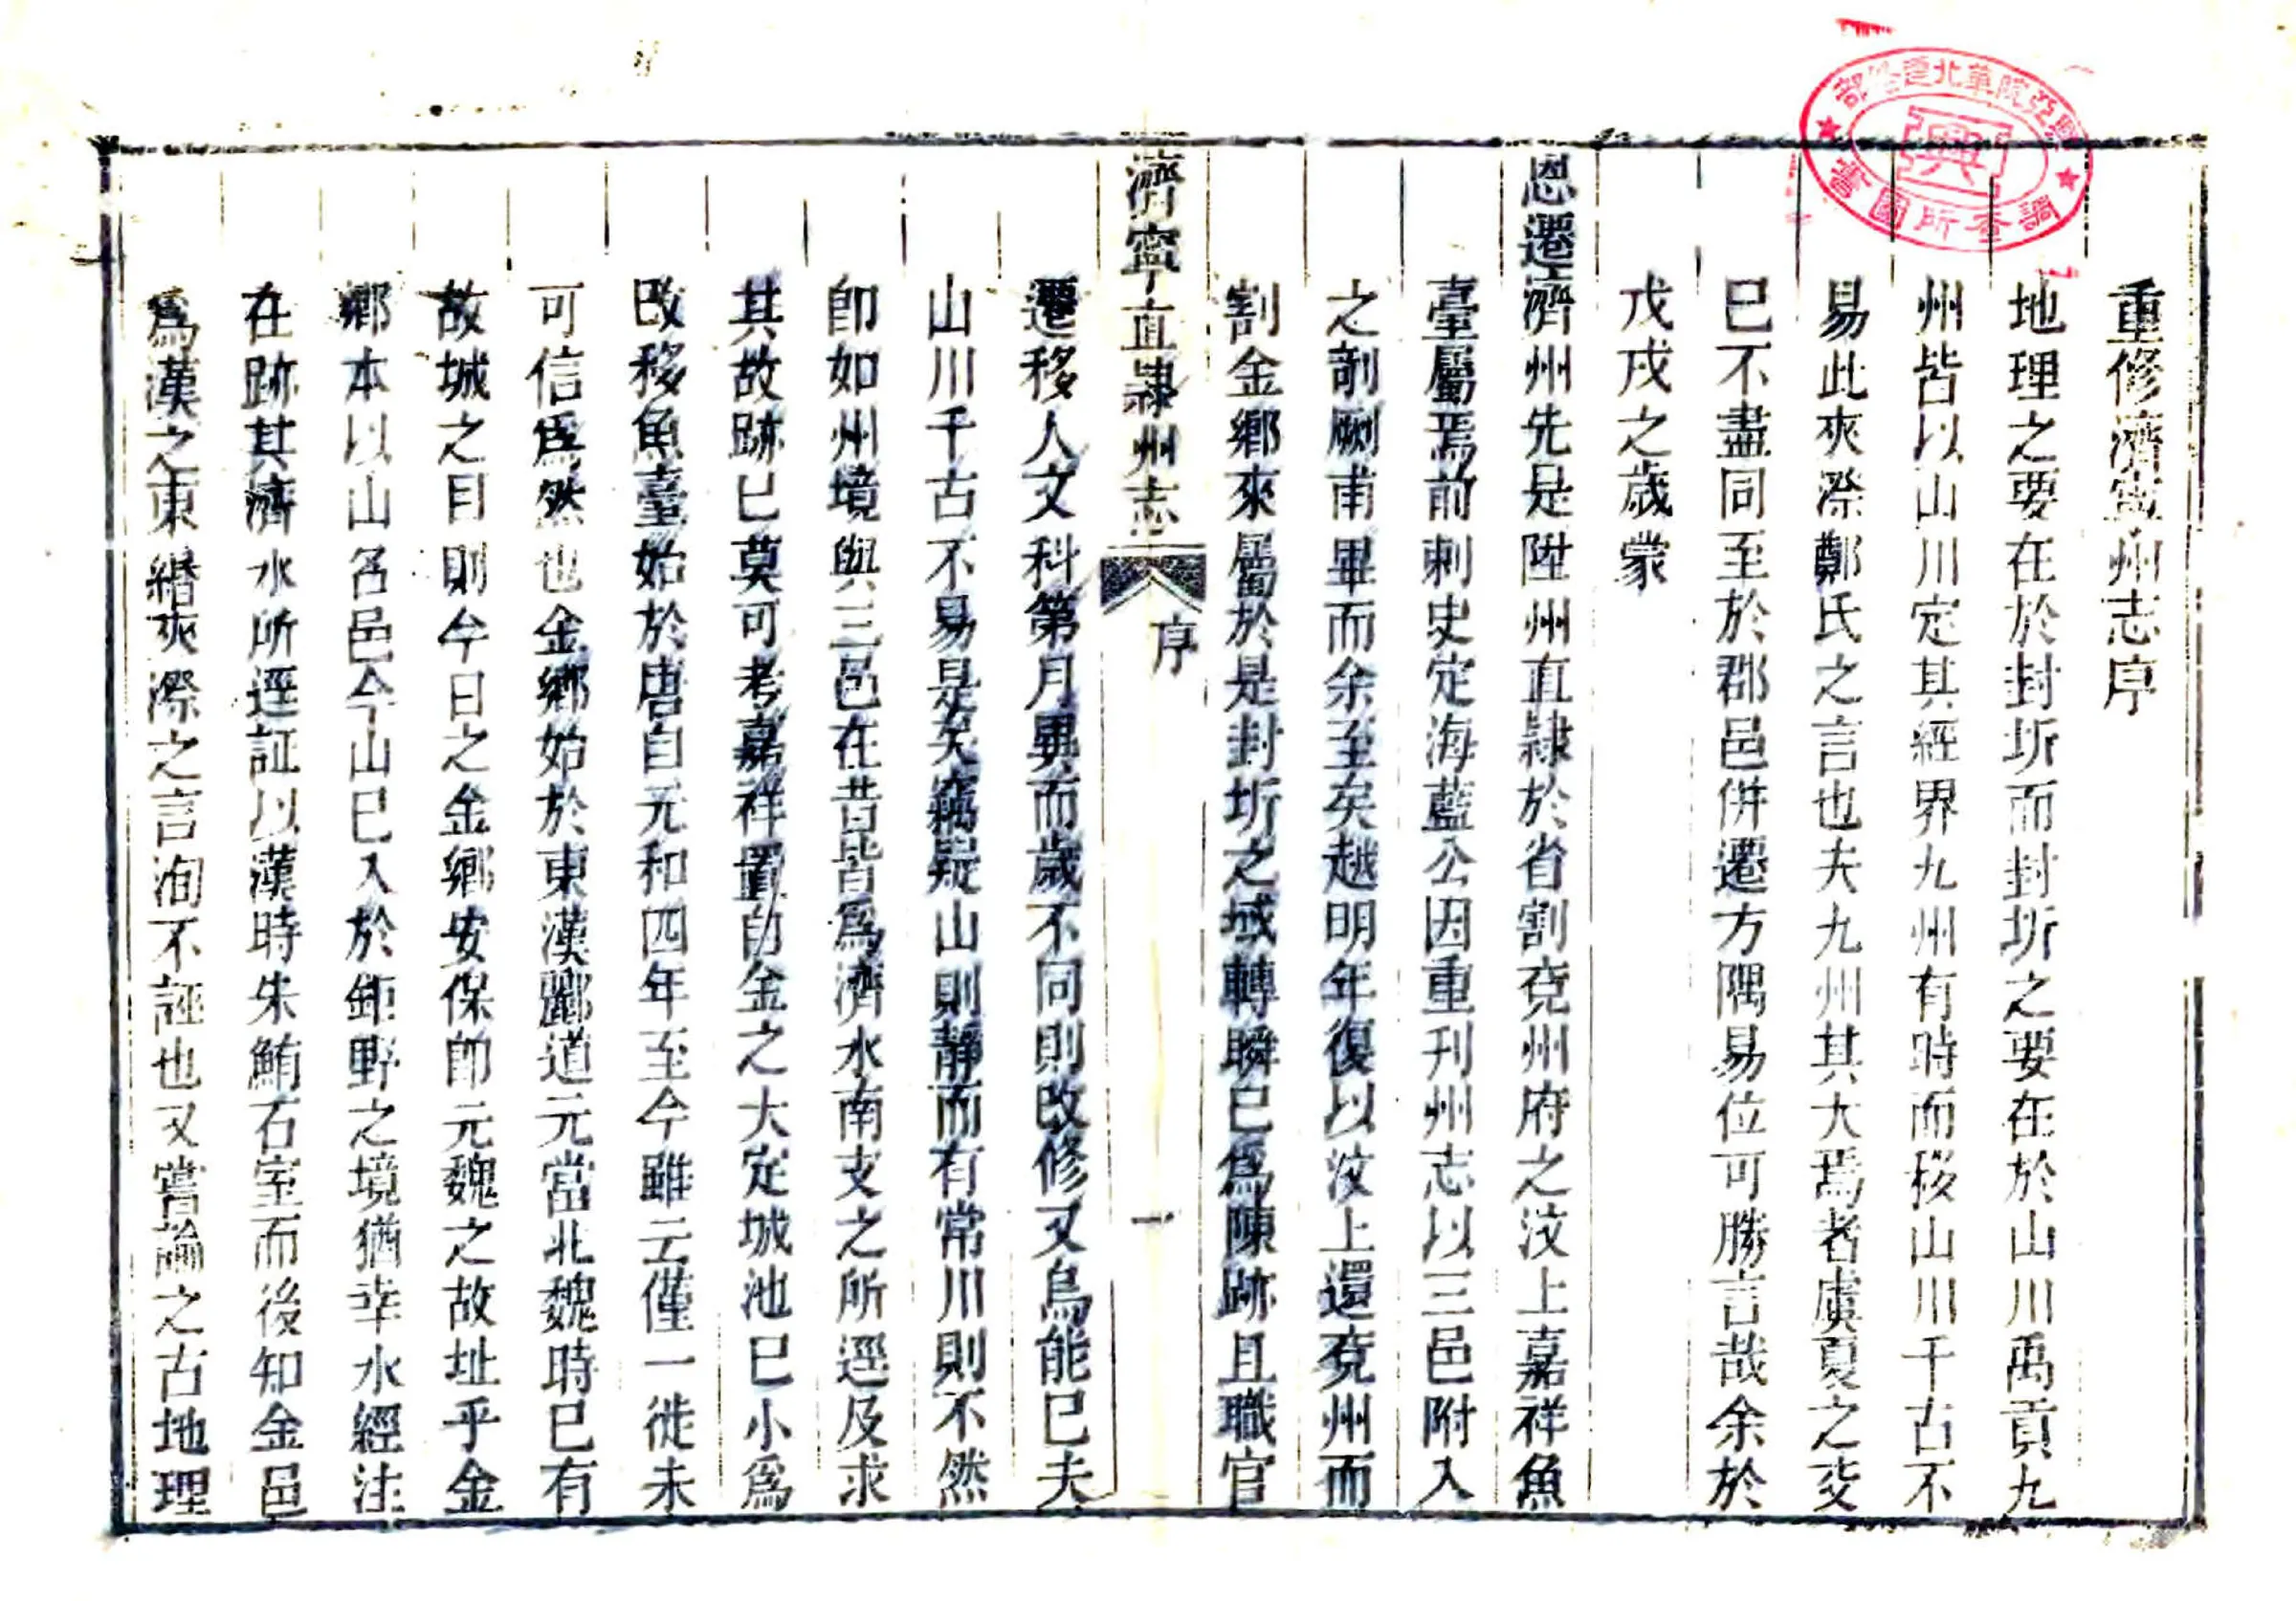 重修濟寧州志序
地理之要在於封圻而封圻之要在於山川禹貢九
州皆以山川定其經界九州有時而移山川千古不
易此夾漈鄭氏之言也夫九州其大焉者虞夏之交
已不盡同至於郡邑併遷方隅易位可勝言哉余於
戊戌之歲蒙
恩遷濟州先是陞州直隸於省割兗州府之汶上嘉祥魚
臺屬焉前刺史定海藍公因重刊州志以三邑附入
之剞劂甫畢而余至矣越明年復以汶上還兗州而
割金鄉來屬於是封圻之域轉瞬已為陳跡且職官
濟寧直隸州志 序 一
遷移人文科第月異而歲不同則改修又烏能已夫
山川千古不易是矣竊疑山則靜而有常川則不然
即如州境與三邑在昔皆為濟水南支之所逕及求
其故跡已莫可考嘉祥置自金之大定城池已小為
改移魚臺始於唐自元和四年至今雖云僅一徙未
可信為然也金鄉始於東漢酈道元當北魏時已有
故城之目則今日之金鄉安保即元魏之故址乎金
鄉本以山名邑今山已入於鉅野之境猶幸水經注
在跡其濟水所逕証以漢時朱鮪石室而後知金邑
為漢之東緡夾漈之言洵不誣也又嘗論之古地理
興亞院華北連絡部
調查所圖書
興